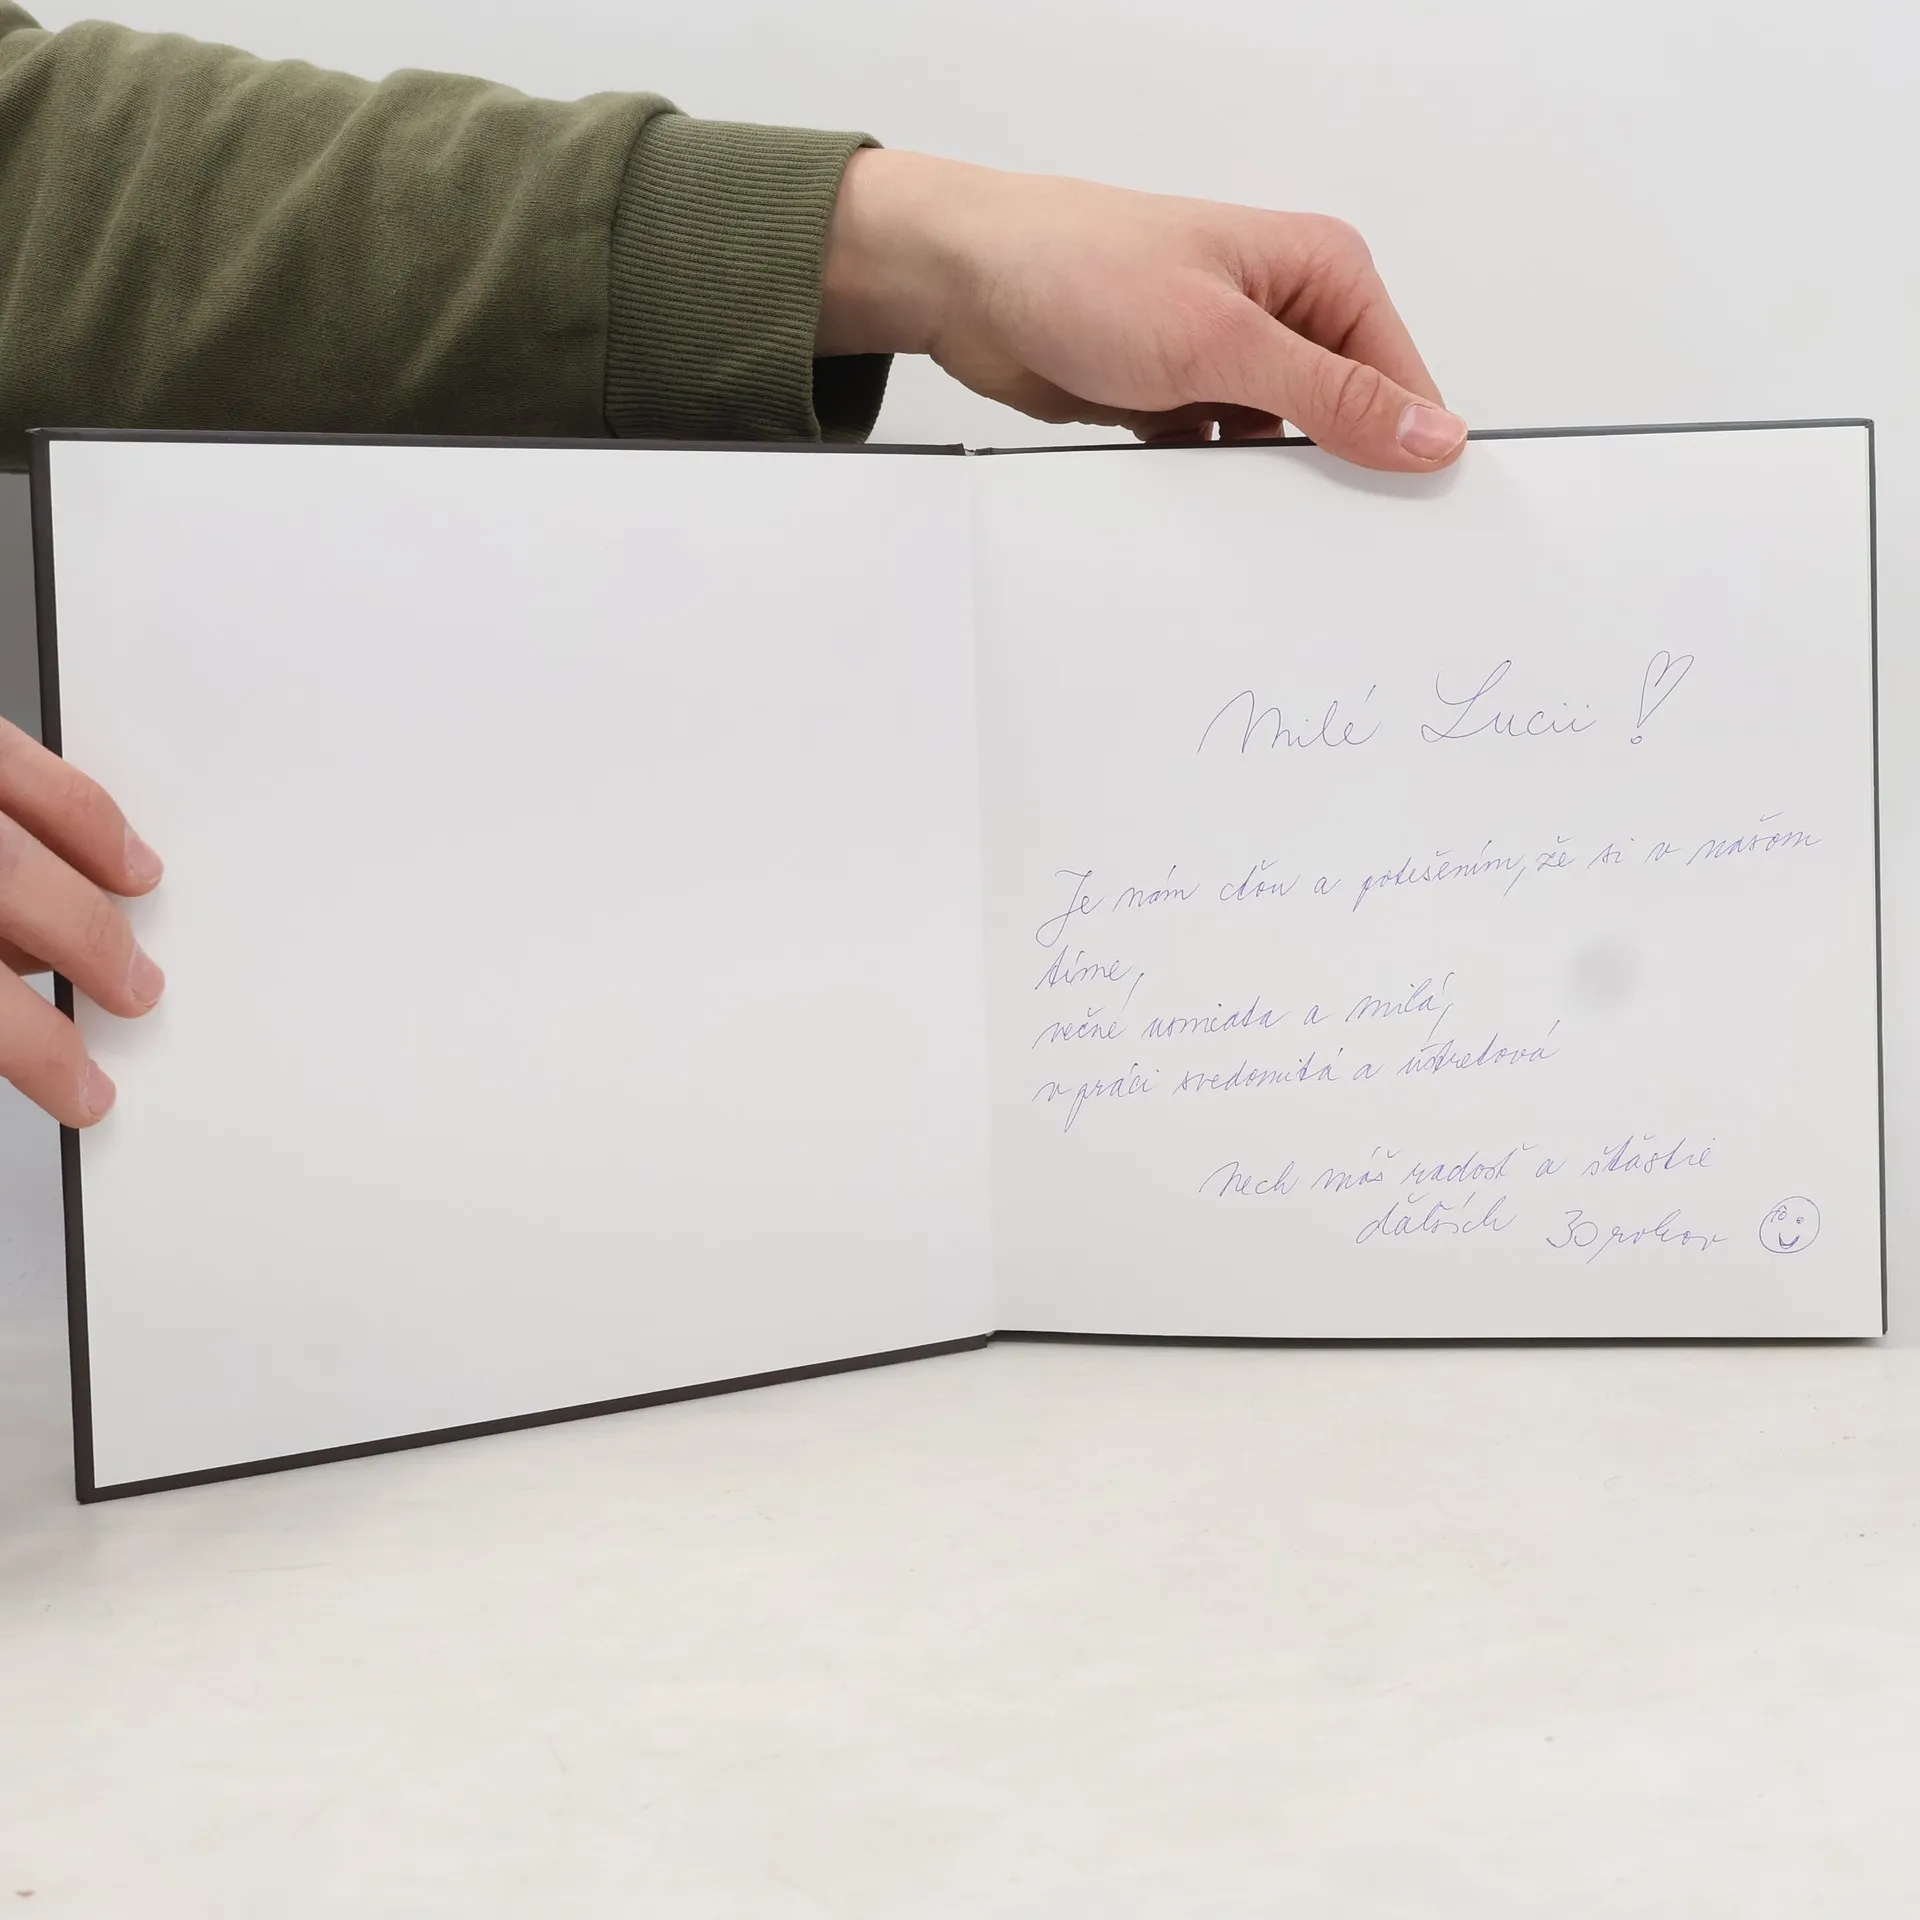 Milé Lucii!
Je nám cťou a potešením, že si v našom
tíme,
večne usmiata a milá,
v práci svedomitá a ústretová
Nech máš radosť a šťastie
ďalších 30 rokov